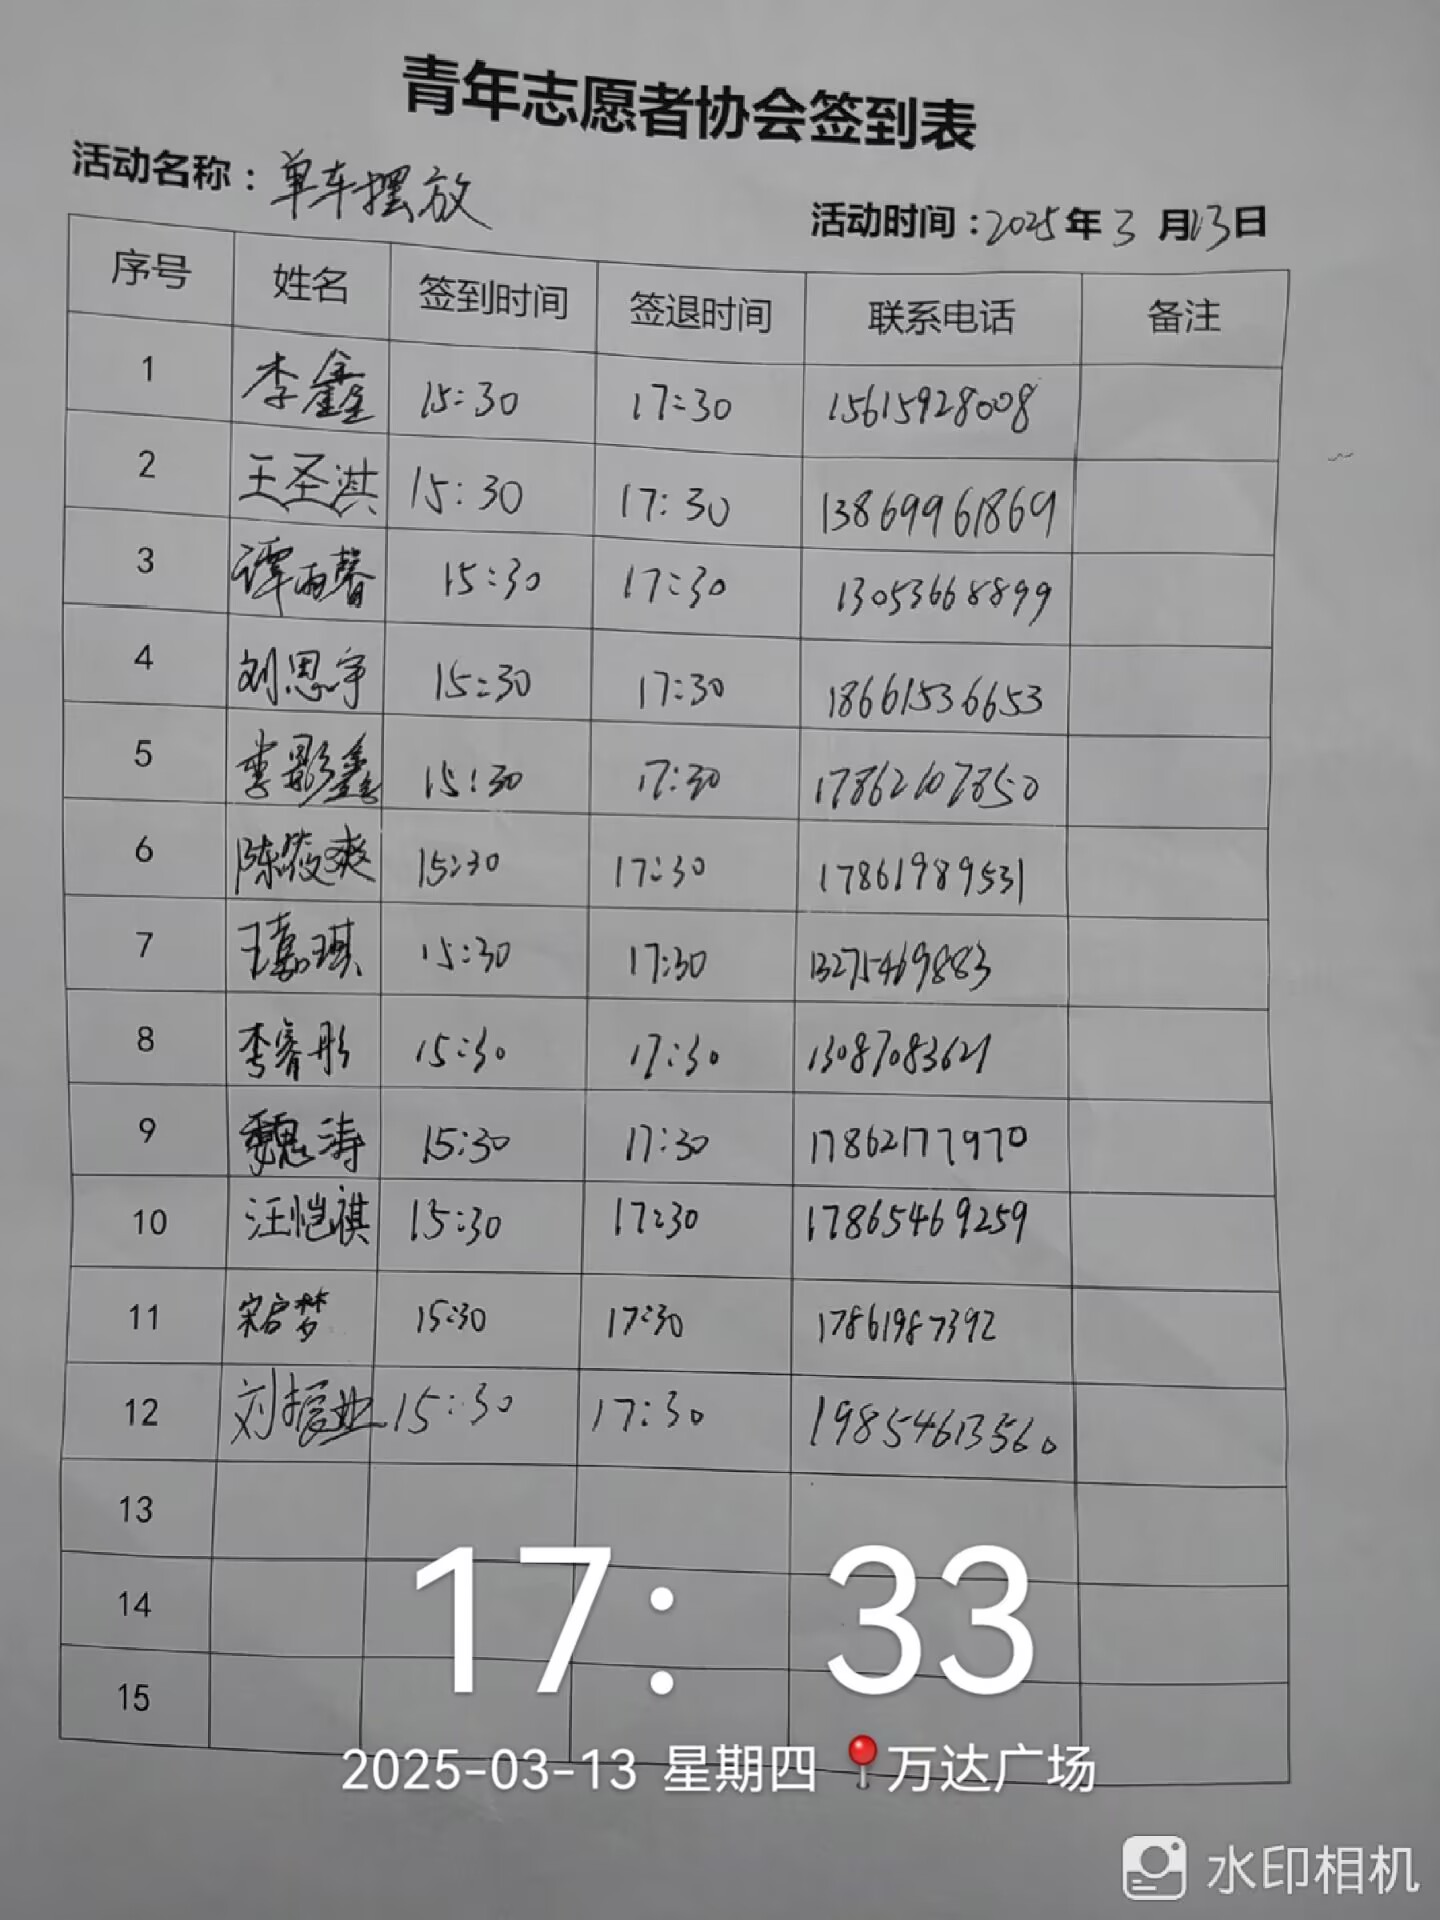 青年志愿者协会签到表
活动名称：单车摆放
活动时间：2025年3月13日
序号 姓名 签到时间 签退时间 联系电话 备注
1 李鑫 15:30 17:30 15615928008
2 王圣淇 15:30 17:30 13869961869
3 谭雨馨 15:30 17:30 13053668899
4 刘思宇 15:30 17:30 18661536653
5 李影鑫 15:30 17:30 17862107850
6 陈筱爽 15:30 17:30 17861989531
7 王嘉琪 15:30 17:30 13275469883
8 李睿彤 15:30 17:30 13087083621
9 魏涛 15:30 17:30 17862177970
10 汪恺祺 15:30 17:30 17865469259
11 15:30 17:30 17861987392
12 15:30 17:30 19854613560
13
14
15
17: 33
2025-03-13 星期四 万达广场
水印相机